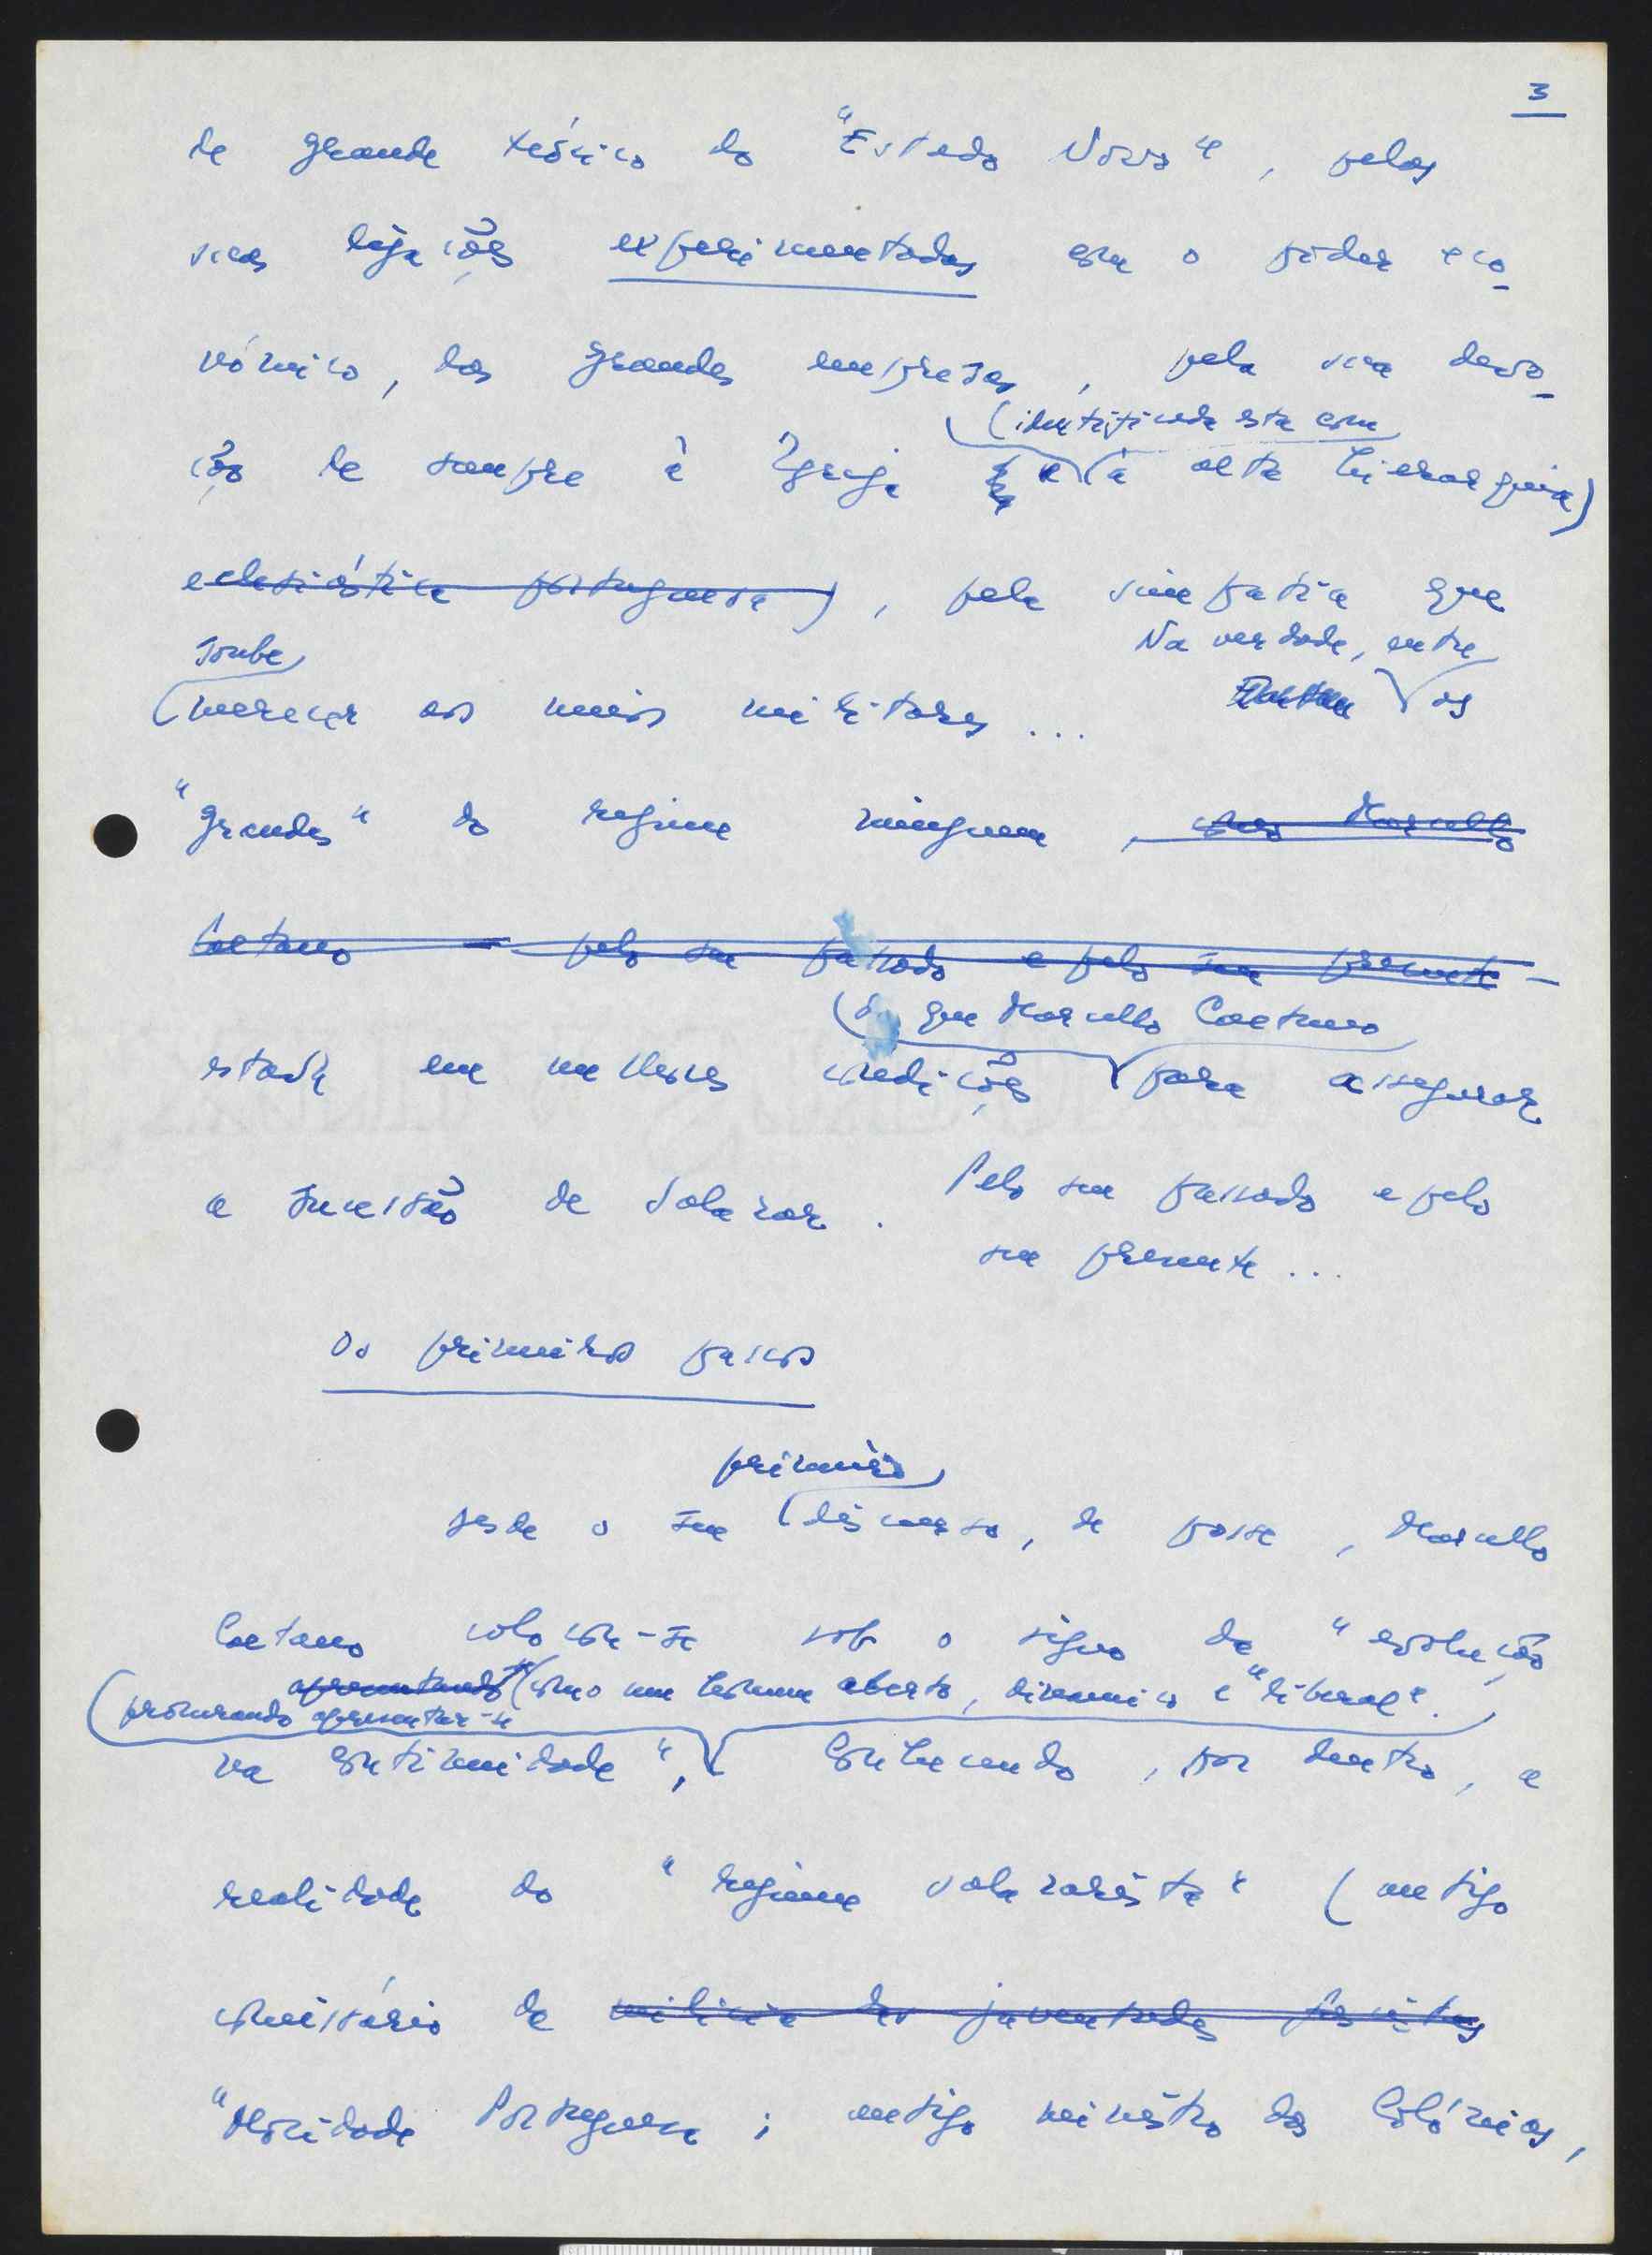 3
de grande teórico do "Estado Novo", pelas
suas ligações experimentadas com o poder eco-
nómico, das grandes empresas, pela sua devo-
(identificada esta com
ção de sempre à Igreja e à alta hierarquia)
eclesiástica portuguesa), pela simpatia que
Na verdade, entre
soube
merecer aos meios militares... os
"grandes" do regime ninguem, como Marcello
Caetano — pelo seu passado e pelo seu presente —
(do que Marcello Caetano
estava em melhores condições para assegurar
a sucessão de Salazar. Pelo seu passado e pelo
seu presente...
Os primeiros passos
primeiro
Desde o seu discurso, de posse, Marcello
Caetano colocou-se sob o signo da "evolução
apresentando-se como um homem aberto, dinamico e "liberal".
(procurando apresentar-se
na continuidade", Conhecendo, por dentro, a
realidade do "regime salazarista" (antigo
comissário da milicia das juventudes fascistas
"Mocidade Portuguesa; antigo ministro das Colónias,